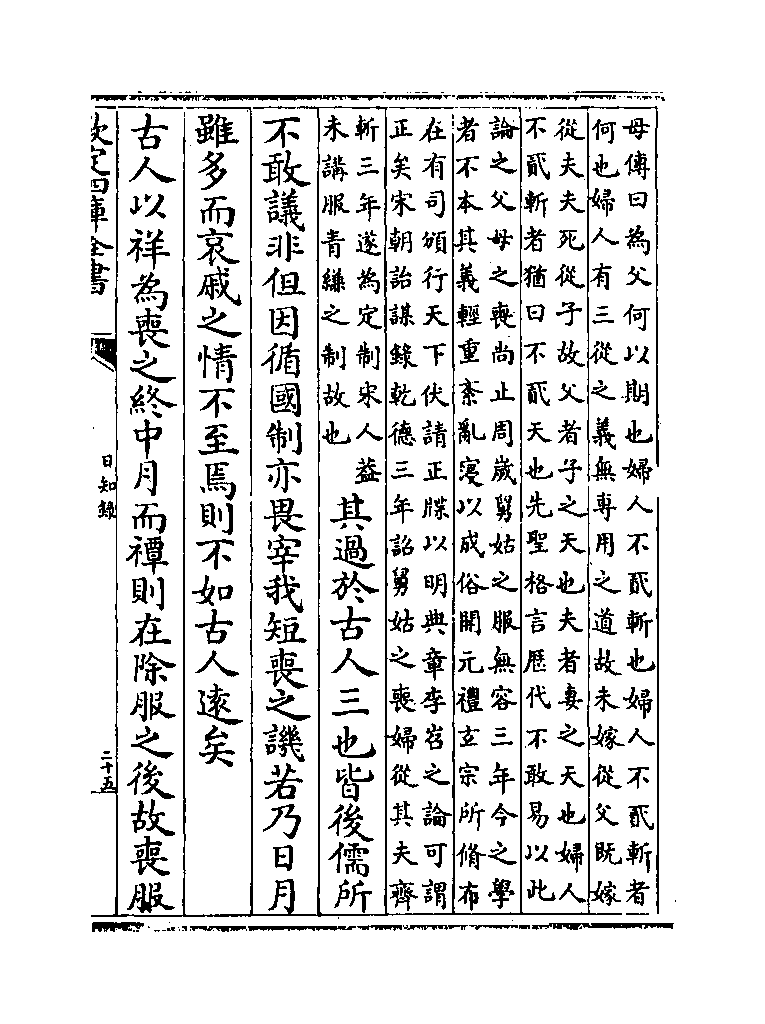 母傳曰為父何以期也婦人不貳斬也婦人不貳斬者
何也婦人有三從之義無專用之道故未嫁從父既嫁
從夫夫死從子故父者子之天也夫者妻之天也婦人
不貳斬者猶曰不貳天也先聖格言歷代不敢易以此
論之父母之喪尚止周嵗舅姑之服無容三年今之學
者不本其義輕重紊亂寖以成俗開元禮𤣥宗所脩布
在有司頒行天下伏請正牒以明典章李岧之論可謂
正矣宋朝詒謀錄乾德三年詔舅姑之喪婦從其夫齊
斬三年遂為定制宋人葢
未講服青縑之制故也
其過於古人三也皆後儒所
不敢議非但因循國制亦畏宰我短喪之譏若乃日月
雖多而哀戚之情不至焉則不如古人遠矣
古人以祥為喪之終中月而禫則在除服之後故喪服
欽定四庫全書
日知錄
二十五